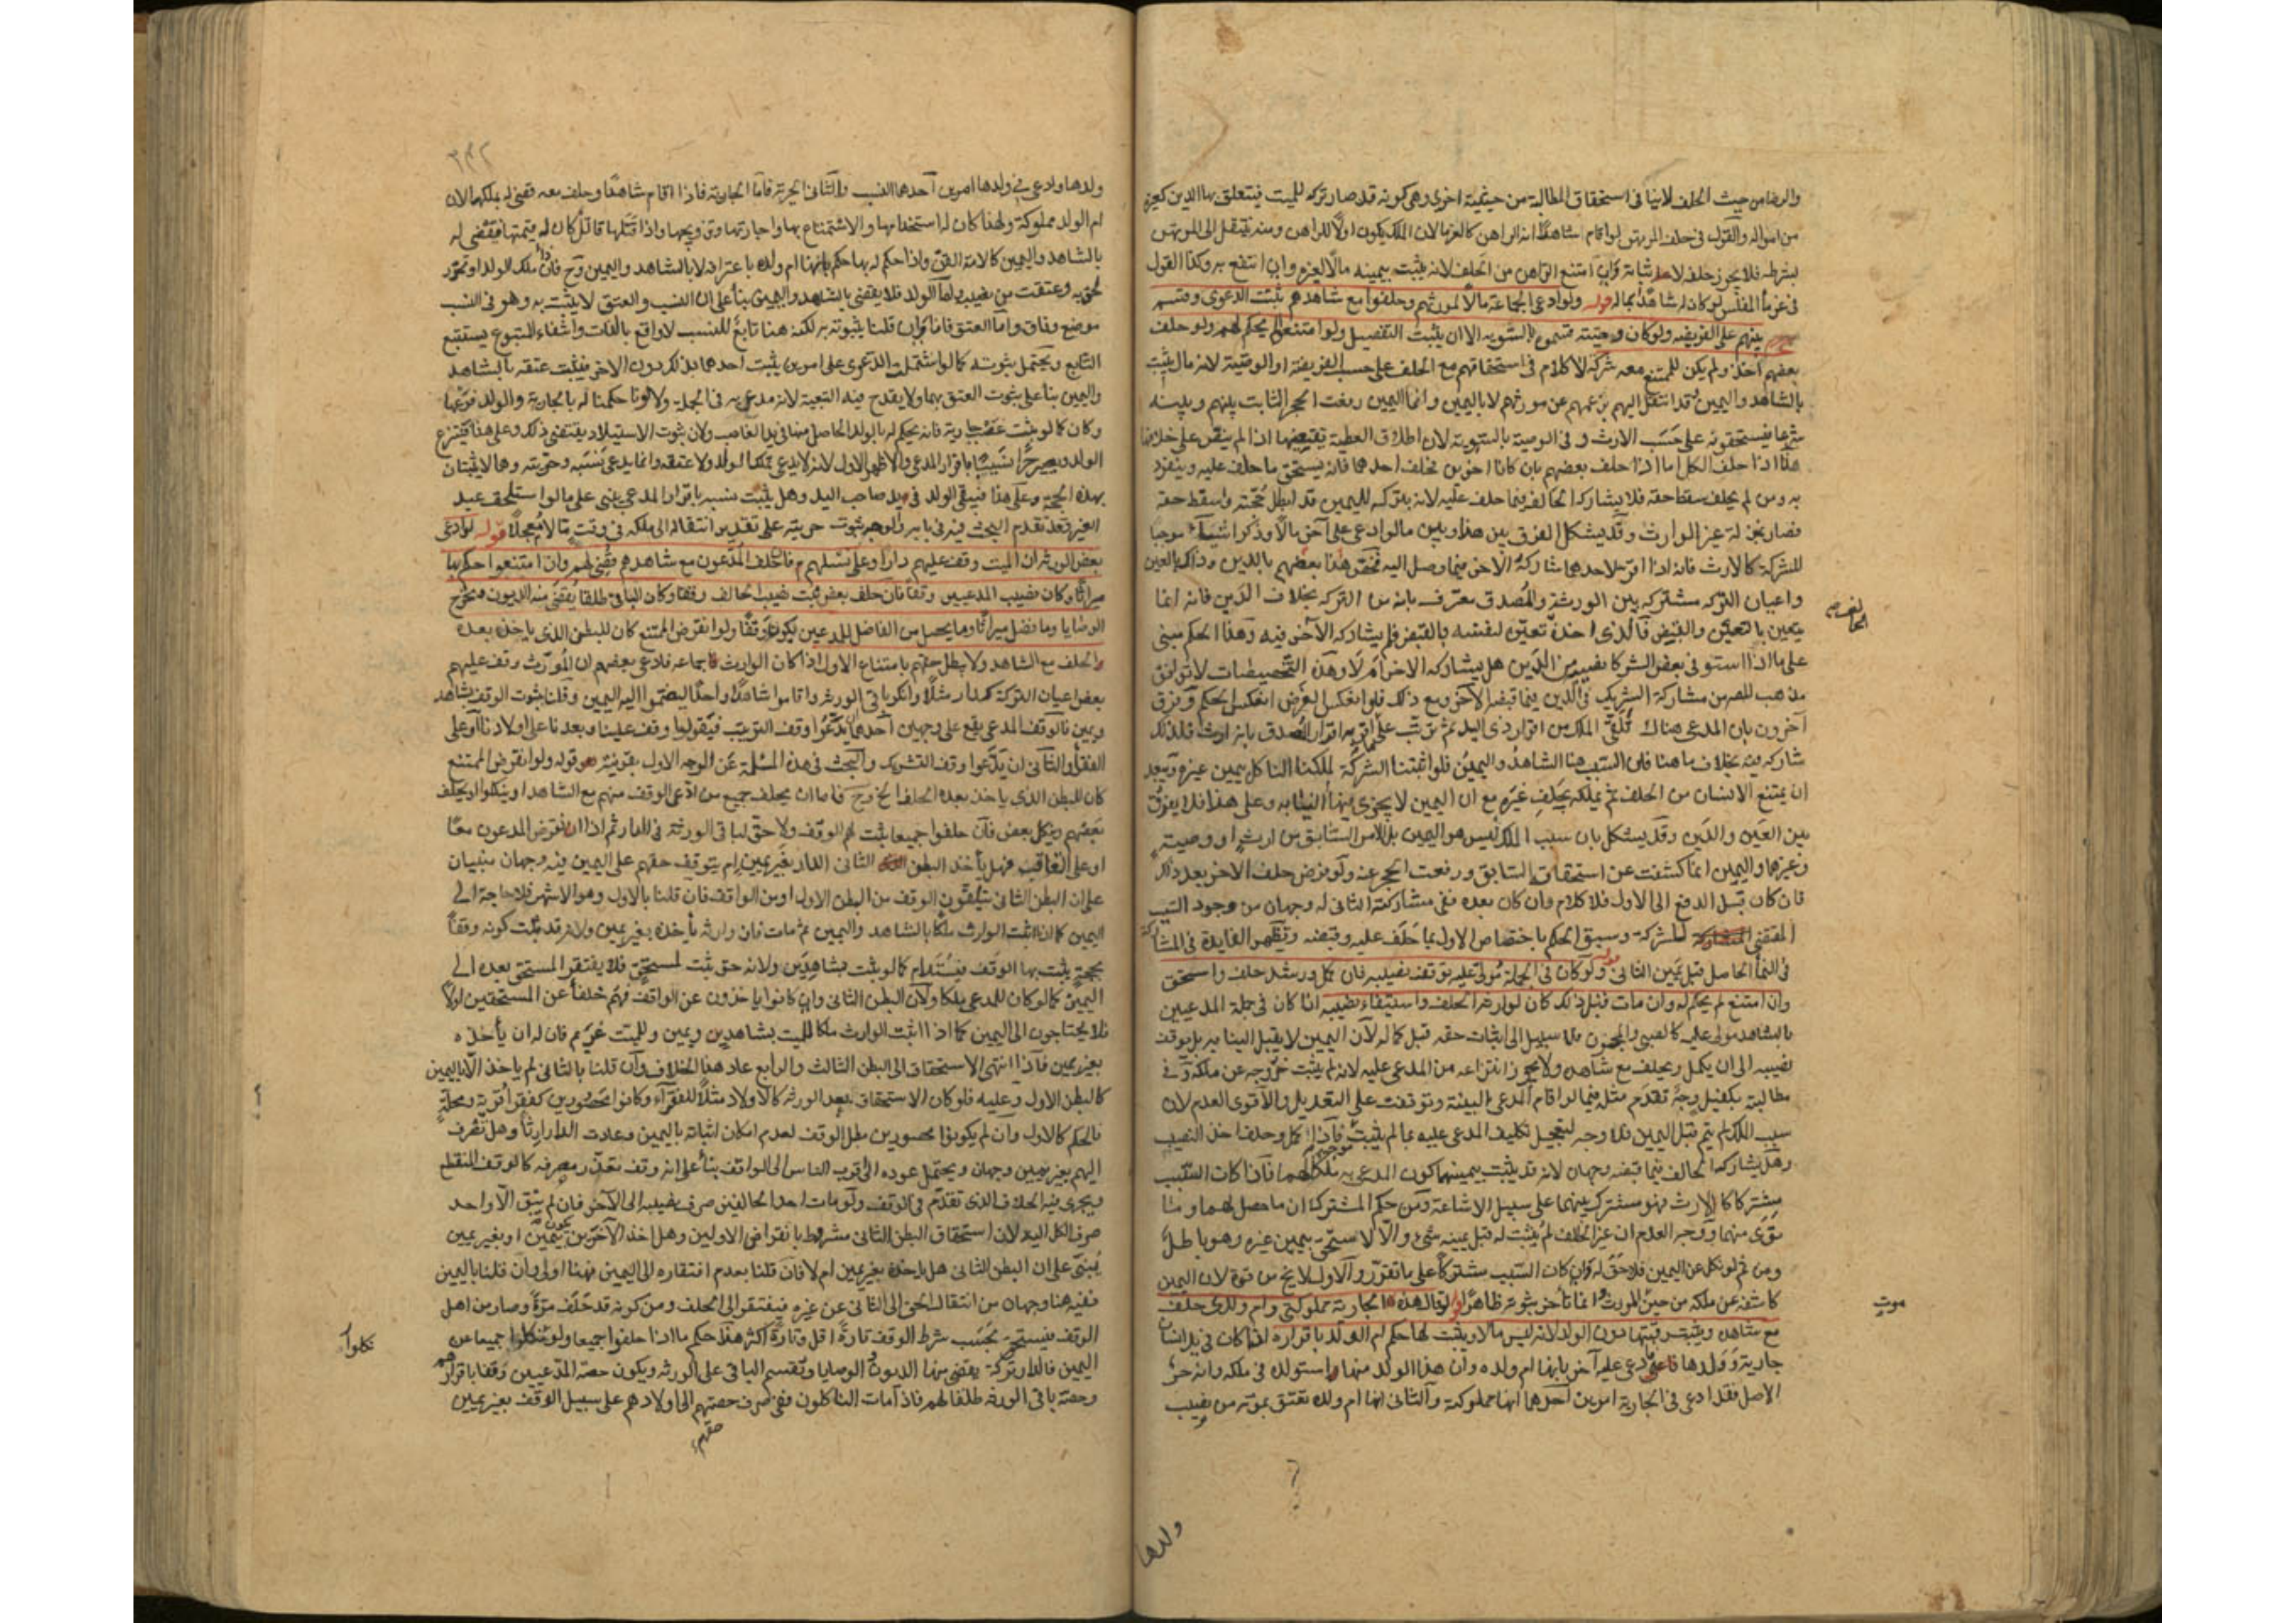 والرضا من حيث الحلف لانيا في استحقاق المطالبة من حيثية اخرى وهي كونه قد صار تركة للميت فيتعلق بها الدين كغيره
من امواله والقول في حلف المرتهن لو اقام شاهدا انه الراهن كالغرماء لان الملك يكون اولا للراهن ومنه ينتقل الى المرتهن
بشرطه فلا يجوز حلفه لاثباته وان امتنع الراهن من الحلف لانه يثبت بيمينه مالا لغيره وان انتفع به وكذا القول
في غرماء المفلس لو كان له شاهد بماله قوله ولو ادعى الجماعة مالا لمورثهم وحلفوا مع شاهدهم ثبتت الدعوى وقسم
بينهم على الفريضة ولو كان وصية قسموه بالسوية الا ان يثبت التفضيل ولو امتنعوا لم يحكم لهم ولو حلف
بعضهم اخذ ولم يكن للممتنع معه شركة لا كلام في استحقاقهم مع الحلف على حسب الفريضة او الوصية لانه مال يثبت
بالشاهد واليمين وقد انتقل اليهم بزعمهم عن مورثهم لا باليمين وانما اليمين رفعت الحجر الثابت بينهم وبينه
شرعا فيستحقونه على حسب الارث وفي الوصية بالسوية لان اطلاق العطية يقتضيها اذا لم ينص على خلافها
هذا اذا حلف الكل اما اذا حلف بعضهم بان كانا اخوين فحلف احدهما فانه يستحق ما حلف عليه وينفرد
به ومن لم يحلف سقط حقه فلا يشارك الحالف فيما حلف عليه لانه بتركه لليمين قد ابطل حجته واسقط حقه
فصار بمنزلة غير الوارث وقد يشكل الفرق بين هذا وبين ما لو ادعى على آخر مالا وذكرا سببا موجبا
للشركة كالارث فانه اذا اقر لاحدهما شاركه الآخر فيما وصل اليه فخص هذا بعضهم بالدين وذاك بالعين
واعيان التركة مشتركة بين الورثة والمصدق معترف بانه من التركة بخلاف الدين فانه انما
يتعين بالتعيين والقبض فالذي اخذه تعين لنفسه بالقبض فلم يشاركه الآخر فيه وهذا الحكم مبني
على ما اذا استوفى بعض الشركاء نصيبه من الدين هل يشاركه الآخر ام لا وهذه التخصيصات لا توافق
مذهب المصنف من مشاركة الشريك في الدين فيما قبضه الآخر ومع ذلك فلو انعكس الفرض انعكس الحكم وفرق
آخرون بان المدعي هناك تلقى الملك من اقرار ذي اليد ثم ترتب على ما اقر به اقرار المصدق بانه ارث فلذلك
شاركه فيه بخلاف ما هنا فان السبب هنا الشاهد واليمين فلو اثبتنا الشركة لملكنا الناكل بيمين غيره ويبعد
ان يمتنع الانسان من الحلف ثم يملكه بحلف غيره مع ان اليمين لا يجري فيها النيابة وعلى هذا فلا يفرق
بين العين والدين وقد يشكل بان سبب الملك ليس هو اليمين بل الامر السابق من ارث او وصية
وغيرهما واليمين انما كشفت عن استحقاق السابق ورفعت الحجر عنه ولو فرض حلف الآخر بعد ذلك
فان كان قبل الدفع الى الاول فلا كلام وان كان بعده ففي مشاركة الثاني له وجهان من وجود السبب
المقتضي للشركة وسبق الحكم باختصاص الاول بما حلف عليه وقبضه وتظهر الفايدة في المشاركة
في النماء الحاصل قبل يمين الثاني قوله ولو كان في الجملة مولى عليه توقف نصيبه فان كمل ورشد حلف واستحق
وان امتنع لم يحكم له وان مات قبل ذلك كان لوارثه الحلف واستيفاء نصيبه اذا كان في جملة المدعيين
بالشاهد مولى عليه كالصبي والمجنون فلا سبيل الى اثبات حقه قبل كماله لان اليمين لا يقبل النيابة بل يوقف
نصيبه الى ان يكمل ويحلف مع شاهده ولا يجوز انتزاعه من المدعى عليه لانه لم يثبت خروجه عن ملكه وفي
مطالبته بكفيل وجه تقدم مثله فيما لو اقام المدعي البينة وتوقفت على التعديل والاقوى العدم لان
سبب الملك لم يتم قبل اليمين فلا وجه لتعجيل تكليف المدعى عليه بما لم يثبت فاذا كمل وحلف اخذ النصيب
وهل يشاركه الحالف فيما قبضه وجهان لانه قد يثبت بيمينهما كون المدعى به ملكا لهما فاذا كان السبب
مشتركا كالارث فهو مشترك بينهما على سبيل الاشاعة ومن حكم المشترك ان ما حصل لهما وما
توى منهما ووجه العدم ان غير الحالف لم يثبت له قبل يمينه شيء والا لاستحق بيمين غيره وهو باطل
ومن ثم لو نكل عن اليمين فلا حق له وان كان السبب مشتركا على ما تقرر والاول لا يخ من قوة لان اليمين
كاشفة عن ملكه من حين المورث وانما تأخر ثبوته ظاهرا قوله لو قال هذه الجارية مملوكتي وام ولدي حلف
مع شاهده ويثبت رقيتها دون الولد لانه ليس مالا ويثبت لها حكم ام الولد باقراره اذا كان في يد انسان
جارية وولدها فادعى عليه آخر بانها ام ولده وان هذا الولد منها واستولده في ملكه وانه حر
الاصل فقد ادعى في الجارية امرين احدهما انها مملوكته والثاني انها ام ولده تعتق بموته من نصيب
الحالف صح
موت
ولدها
٣٩٢
ولدها وادعى في ولدها امرين احدهما النسب والثاني الحرية فاما الجارية فاذا اقام شاهدا وحلف معه قضي له بملكها لان
ام الولد مملوكة ولهذا كان له استخدامها والاستمتاع بها واجارتها وتزويجها واذا قتلها قاتل كان له قيمتها فيقضى له
بالشاهد واليمين كالامة القن واذا حكم له بها حكم بانها ام ولده باعترافه لا بالشاهد واليمين وح فان ملك الولد او تحرر
لحق به وعتقت من نصيبه واما الولد فلا يقضى بالشاهد واليمين بناء على ان النسب والعتق لا يثبت به وهو في النسب
موضع وفاق واما العتق فانا وان قلنا بثبوته به لكنه هنا تابع للنسب لا واقع بالذات وانتفاء المتبوع يستتبع
التابع ويحتمل ثبوته كما لو اشتملت الدعوى على امرين يثبت احدهما بذلك دون الآخر فيثبت عتقه بالشاهد
واليمين بناء على ثبوت العتق بهما ولا يقدح فيه التبعية لانه مدعى به في الجملة ولانا حكمنا له بالجارية والولد فرعها
وكان كما لو يثبت غصب جارية فانه يحكم له بالولد الحاصل منها في يد الغاصب ولان ثبوت الاستيلاد يقتضي ذلك وعلى هذا فينتزع
الولد ويصير حرا نسيبا باقرار المدعي والاظهر الاول لانه لا يدعي ملك الولد ولا عتقه وانما يدعي نسبه وحريته وهما لا يثبتان
بهذه الحجة وعلى هذا فيبقى الولد في يد صاحب اليد وهل يثبت نسبه باقرار المدعي يبنى على ما لو استلحق عبد
الغير وقد تقدم البحث فيه في بابه والوجه ثبوت حريته على تقدير انتقاله الى ملكه في وقت ما لا معجلا قوله لو ادعى
بعض الورثة ان الميت وقف عليهم دارا وعلى نسلهم فان حلف المدعون مع شاهدهم قضي لهم وان امتنعوا حكم بها
ميراثا وكان نصيب المدعيين وقفا فان حلف بعض ثبت نصيب الحالف وقفا وكان الباقي طلقا يقضى منه الديون ويخرج
الوصايا وما فضل ميراثا وما يحصل من الفاضل للمدعين يكون وقفا ولو انقرض الممتنع كان للبطن الذي ياخذ بعده
الحلف مع الشاهد ولا يبطل حقهم بامتناع الاول اذا كان الوارث جماعة فادعى بعضهم ان المورث وقف عليهم
بعض اعيان التركة كدار مثلا وانكر باقي الورثة واقاموا شاهدا واحدا ليضموا اليه اليمين وقلنا بثبوت الوقف بشاهد
ويمين فالوقف المدعى يقع على وجهين احدهما ان يدعوا وقف الترتيب فيقولوا وقف علينا وبعدنا على اولادنا او على
الفقراء والثاني ان يدعوا وقف التشريك والبحث في هذه المسئلة عن الوجه الاول بقرينة قوله ولو انقرض الممتنع
كان للبطن الذي ياخذ بعده الحلف الخ وح فاما ان يحلف جميع من ادعى الوقف منهم مع الشاهد او ينكلوا او يحلف
بعضهم وينكل بعض فان حلفوا جميعا يثبت لهم الوقف ولا حق لباقي الورثة في الدار ثم اذا انقرض المدعون معا
او على التعاقب فهل يأخذ البطن الثاني الدار بغير يمين ام يتوقف حقهم على اليمين فيه وجهان مبنيان
على ان البطن الثاني يتلقون الوقف من البطن الاول او من الواقف فان قلنا بالاول وهو الاشهر فلا حاجة الى
اليمين كما اذا اثبت الوارث ملكا بالشاهد واليمين ثم مات فان وارثه يأخذه بغير يمين ولانه قد يثبت كونه وقفا
بحجة يثبت بها الوقف فيستدام كما لو يثبت بشاهدين ولانه حق ثبت لمستحق فلا يفتقر المستحق بعده الى
اليمين كما لو كان للمدعي ملكا ولان البطن الثاني وان كانوا ياخذون عن الواقف فهم خلفاء عن المستحقين اولا
فلا يحتاجون الى اليمين كما اذا اثبت الوارث ملكا للميت بشاهدين ويمين وللميت غريم فان له ان يأخذه
بغير يمين فاذا انتهى الاستحقاق الى البطن الثالث والرابع عاد هذا الخلاف وان قلنا بالثاني لم ياخذ الا باليمين
كالبطن الاول وعليه فلو كان الاستحقاق بعد الورثة كالاولاد مثلا للفقراء وكانوا محصورين كفقراء قرية ومحلة
فالحكم كالاول وان لم يكونوا محصورين بطل الوقف لعدم امكان اثباته باليمين وعادت الدار ارثا وهل تصرف
اليهم بغير يمين وجهان ويحتمل عوده الى اقرب الناس الى الواقف بناء على انه وقف تعذر مصرفه كالوقف المنقطع
ويجري فيه الخلاف الذي تقدم في الوقف ولو مات احد الحالفين صرف نصيبه الى الآخر فان لم يبق الا واحد
صرف الكل اليه لان استحقاق البطن الثاني مشروط بانقراض الاولين وهل اخذ الآخرين يكون بيمين او بغير يمين
يبنى على ان البطن الثاني هل ياخذه بغير يمين ام لا فان قلنا بعدم افتقاره الى اليمين فهنا اولى وان قلنا باليمين
ففيه هنا وجهان من انتقال الحق الى الثاني عن غيره فيفتقر الى الحلف ومن كونه قد حلف مرة وصار من اهل
الوقف فيستحق بحسب شرط الوقف تارة اقل وتارة اكثر هذا حكم ما اذا حلفوا جميعا ولو نكلوا جميعا عن
اليمين فالدار تركة يقضى منها الديون والوصايا وتقسم الباقي على الورثة ويكون حصة المدعيين وقفا باقرارهم
وحصة باقي الورثة طلقا لهم فاذا مات الناكلون ففي صرف حصتهم الى اولادهم على سبيل الوقف بغير يمين
نكلوا
حقهم